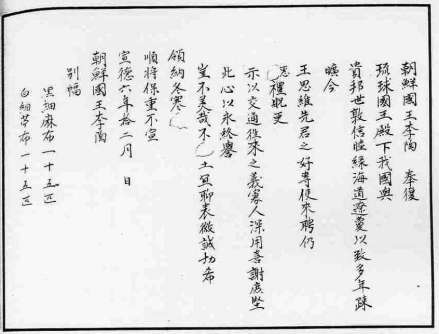 朝鮮國王李祹　奉復
琉球國王殿下我國與
貴邦世敦信睦緣海道遼夐以致多年疎
曠今
王思繼先君之好専使來聘仍
惠禮貺更
示以交通徃來之義寡人深用喜謝庶堅
此心以永終譽
豈不美哉不土冝聊表微誠切希
領納冬寒
順將保重不宣
宣德六年拾二月　日
朝鮮國王李祹
別幅
黒細麻布一十五匹
白細苧布一十五匹